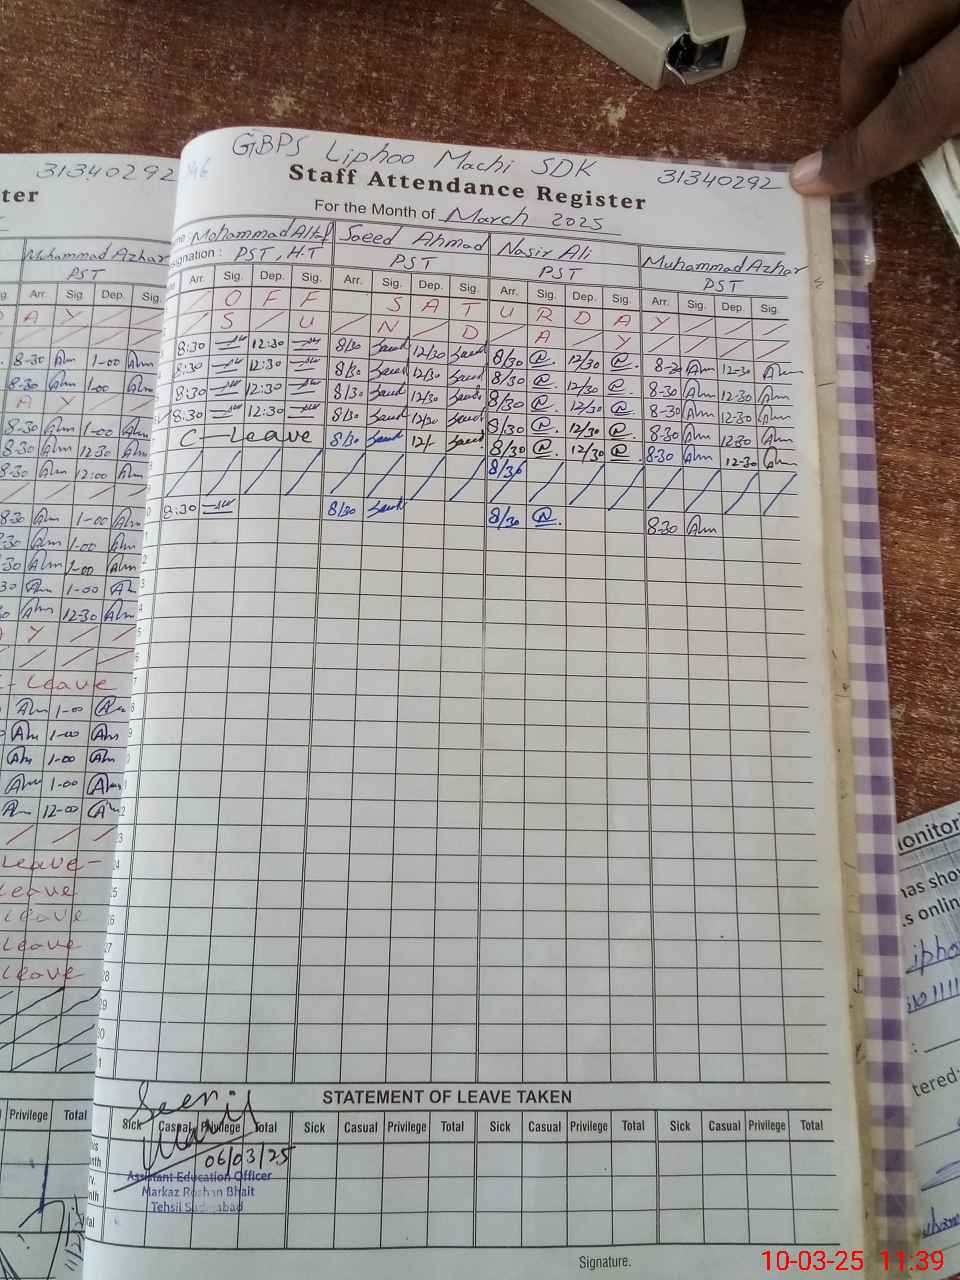 31340292
ter
Muhammad Azhar
PST
g. Arr. Sig. Dep. Sig.
A Y
8-30 Am 1-00 Am
8-30 Am 1-00 Am
A Y
8-30 Am 1-00 Am
8-30 Am 12-30 Am
8-30 Am 12-00 Am
8-30 Am 1-00 Am
-30 Am 1-00 Am
-30 Am 1-00 Am
30 Am 1-00 Am
Am 12-30 Am
Y
Leave
Am 1-00
Am 1-00 Am
Am 1-00 Am
Am 1-00 Am
Am 12-00 Am
Leave
Leave
Leave
Leave
Leave
Privilege Total
GBPS Liphoo Machi SDK
31340292
Staff Attendance Register
For the Month of March 2025
Mohammad Altaf Saeed Ahmad Nasir Ali Muhammad Azhar
signation : PST, H.T PST PST PST
Arr. Sig. Dep. Sig. Arr. Sig. Dep. Sig. Arr. Sig. Dep. Sig. Arr. Sig. Dep. Sig.
O F F S A T U R D A Y
S U N D A Y
8:30 12:30 8/30 Saeed 12/30 Saeed 8/30 @. 12/30 @. 8-30 Am 12-30 Am
8:30 12:30 8/30 Saeed 12/30 Saeed 8/30 @. 12/30 @. 8-30 Am 12-30 Am
8:30 12:30 8/30 Saeed 12/30 Saeed 8/30 @. 12/30 @. 8-30 Am 12-30 Am
8:30 12:30 8/30 Saeed 12/30 Saeed 8/30 @. 12/30 @. 8-30 Am 12-30 Am
C-Leave 8/30 Saeed 12/- Saeed 8/30 @. 12/30 @. 8-30 Am 12-30 Am
8/30
8:30 8/30 Saeed 8/30 @. 8-30 Am
2
3
4
5
6
7
8
9
23
24
25
26
27
28
29
30
STATEMENT OF LEAVE TAKEN
Sick Casual Privilege Total Sick Casual Privilege Total Sick Casual Privilege Total Sick Casual Privilege Total
Seen
06/03/25
Assistant Education Officer
Markaz Roshan Bhait
Tehsil Sadiqabad
Signature.
onitor
has sho
s onlin
tered:
10-03-25 11:39